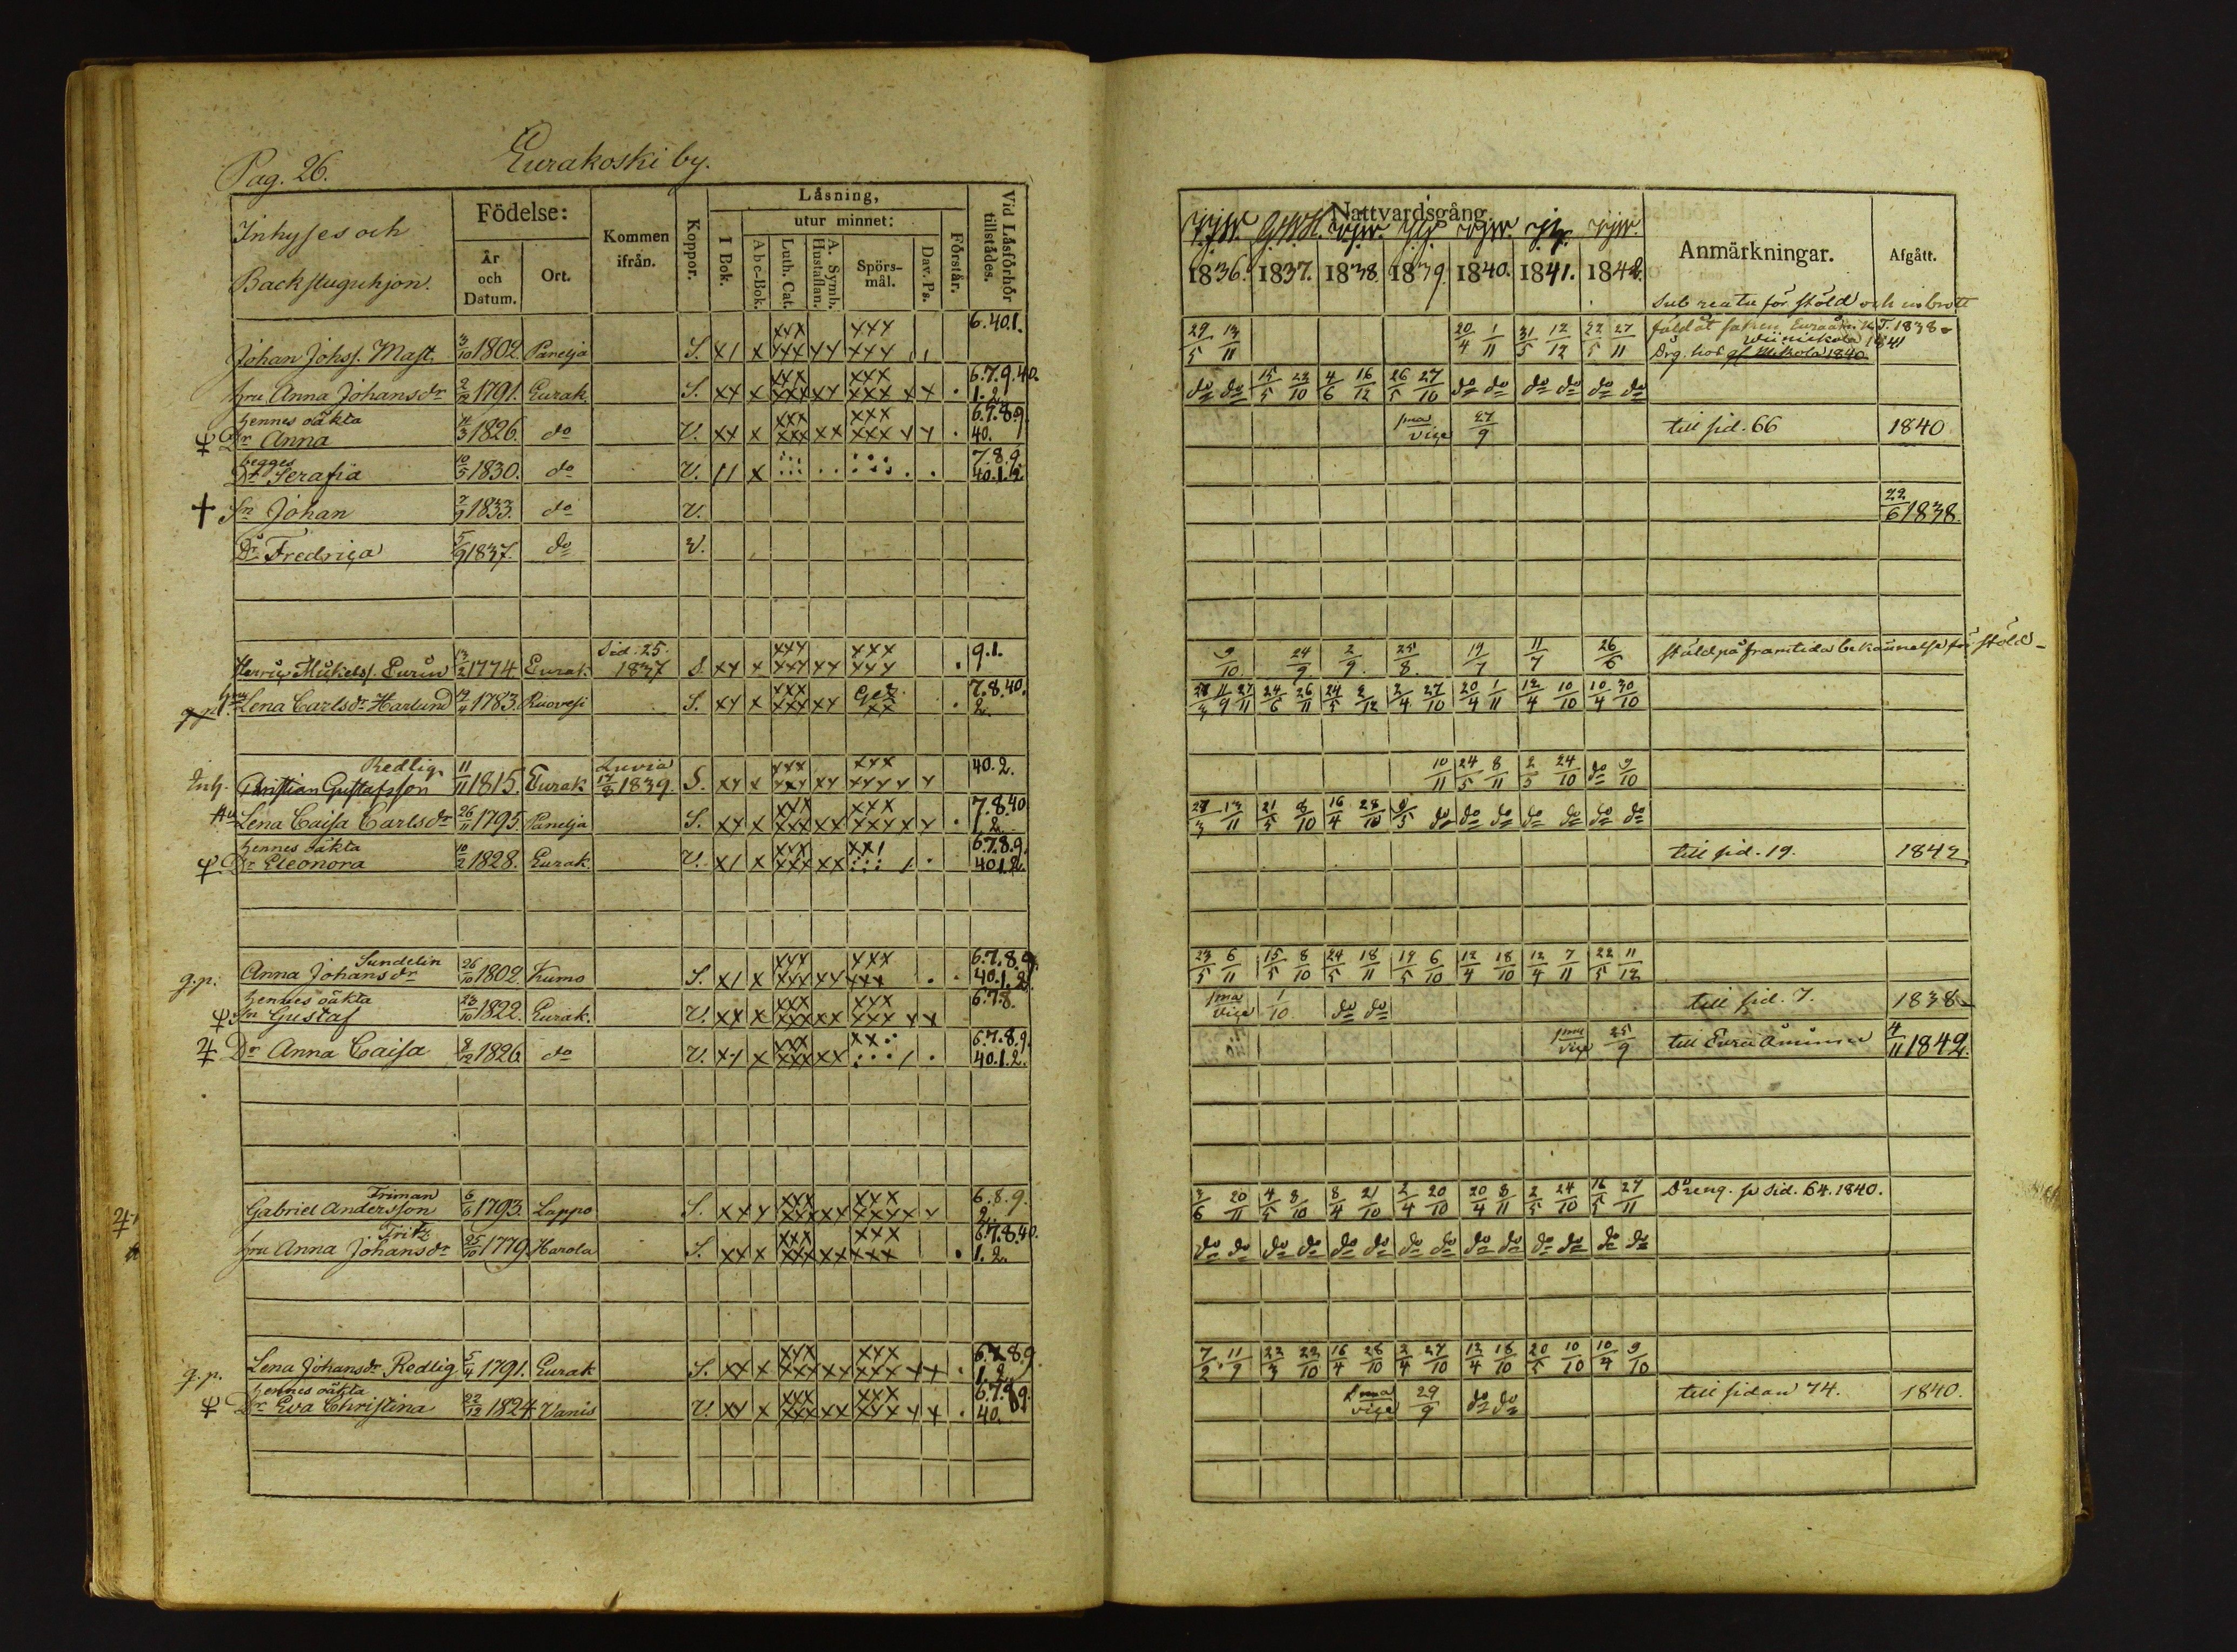 Pag. 26. Eurakoski by.
Inhyses och
Backstuguhjon.
Födelse:
År
och
Datum.
Ort.
Kommen
ifrån.
Koppor.
Läsning,
I Bok.
utur minnet:
Abc-Bok.
Luth. Cat.
A. Symb.
Hustaflan.
Spörs-
mål.
Dav. Ps.
Förstår.
Vid Läsförhör
tillstädes.
Johan Johss. Mast. 3/10 1802. Panelja S. x1 x xxx xxx xx xxx xxx 6.40.1.
hru Anna Johansdr 2/2 1791. Eurak. S. xx x xxx xxx xx xxx xxx xx . 6.7.9.40. 1.2.
hennes oäkta
Dr Anna 3 1826. do V. xx x xxx xxx xx xxx xxx xx . 6.7.8.9. 40.
begges
Dr Serafia 10/5 1830. do V. 11 x 7.8.9. 40.1.2.
Sn Johan 7/9 1833. do V.
Dr Fredrica 5/9 1837. do V.
Henric Mickels. Eurén 13/2 1774 Eurak. Sid. 25. 1837 S. xx x xxx xxx xx xxx xxx . 9.1.
Lena Carlsdr Harlund 1783. Ruovesi S. xx x xxx xxx xx . 7.8.40. 2.
Inh. Redlig
Christian Gustafsson 11/11 1815. Eurak Luvia 1839. S. xx x xxx xxx xx xxx xxxx x 40.2.
Hu Lena Caisa Carlsdr 26/11 1795. Panelja S. xx x xxx xxx xx xxx xxxx x . 7.8.40 1.2.
hennes oäkta
Dr Eleonora 10/2 1828. Eurak. V. x1 x xxx xxx xx xx1 6.7.8.9. 40.1.2.
Sundelin
g.p. Anna Johansdr 26/10 1802. Kumo S. x1 x xxx xxx xx xxx xxx . . 6.7.8.9. 40.1.2.
hennes oäkta
Sn Gustaf 23/10 1822. Eurak. V. xx x xxx xxx xx xxx xxx xx 6.7.8.
Dr Anna Caisa 8/2 1826. do V. xx x xxx xxx xx 6.7.8.9. 40.1.2.
Friman
Gabriel Andersson 6/6 1793. Lappo S. xx x xxx xxx xx xxx xxxx x 6.8.9. 2.
Fritz
hru Anna Johansdr 25/10 1779 Harola S. xx x xxx xxx xx xxx xxx . 6.7.8.40. 1.2.
g.p. Lena Johansdr Redlig 5/4 1791. Eurak S. xx x xxx xxx xx xxx xxx xx . 6.7.8.9 1.2.
hennes oäkta
Dr Eva Christina 22/12 1824 Vanis V. xx x xxx xxx xx xxx xxx xx . 6.7.8.9. 40.
Nattvardsgång
1836. 1837. 1838. 1839. 1840. 1841. 1842.
Anmärkningar.
Afgått.
Sub reatu för stöld och inbrott
29/5 13/11 20/4 1/11 31/5 12/12 22/5 27/11 Drg. hos 1840 1841
do do 15/5 22/10 4/6 16/12 26/5 27/10 do do do do do do
1ma vice 27/9 till sid. 66 1840
22/6 1838.
9/10 24/9 2/9 25/8 19/7 11/7 26/6 stäld på framtida bekännelse för stöld
24/6 26/11 24/5 2/12 2/4 27/10 20/4 1/11 12/4 10/10 10/4 30/10
10/11 24/5 8/11 2/5 24/10 do 9/10
27/3 13/11 21/5 8/10 16/4 28/10 9/5 do do do do do do do
till sid. 19. 1842
23/5 6/11 15/5 8/10 24/5 18/11 19/5 6/10 12/4 18/10 12/4 7/11 22/5 11/12
1ma vice 1/10 do do till sid. 7. 1838
1ma vice 25/9 till Eura Åminne 4/11 1842.
3/6 20/11 4/5 8/10 8/4 21/10 2/4 20/10 20/4 8/11 2/5 24/10 16/5 27/11 Dreng. p Sid. 64. 1840.
do do do do do do do do do do do do do do
7/2 11/9 23/3 22/10 16/4 28/10 2/4 27/10 12/4 18/10 20/5 10/10 10/4 9/10
1ma vice 29/9 do do till sidan 74. 1840.